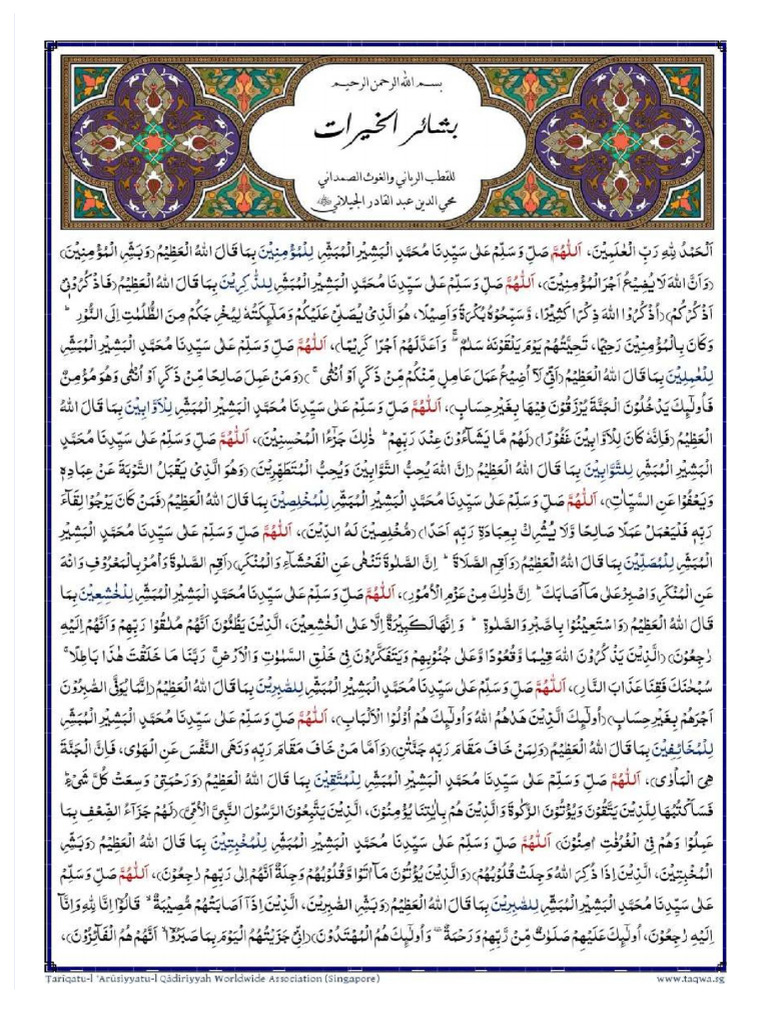 بسم الله الرحمن الرحيم
بشائر الخيرات
للقطب الرباني والغوث الصمداني
محي الدين عبد القادر الجيلاني
اَلْحَمْدُ لِلّٰهِ رَبِّ الْعٰلَمِيْنَ، اَللّٰهُمَّ صَلِّ وَسَلِّمْ عَلٰى سَيِّدِنَا مُحَمَّدٍ الْبَشِيْرِ الْمُبَشِّرِ لِلْمُؤْمِنِيْنَ بِمَا قَالَ اللهُ الْعَظِيْمُ ﴿وَبَشِّرِ الْمُؤْمِنِيْنَ﴾
﴿وَاَنَّ اللهَ لَا يُضِيْعُ اَجْرَ الْمُؤْمِنِيْنَ﴾، اَللّٰهُمَّ صَلِّ وَسَلِّمْ عَلٰى سَيِّدِنَا مُحَمَّدٍ الْبَشِيْرِ الْمُبَشِّرِ لِلذّٰكِرِيْنَ بِمَا قَالَ اللهُ الْعَظِيْمُ ﴿فَاذْكُرُوْنِيْ
اَذْكُرْكُمْ﴾ ﴿اُذْكُرُوا اللهَ ذِكْرًا كَثِيْرًا، وَسَبِّحُوْهُ بُكْرَةً وَاَصِيْلًا، هُوَ الَّذِيْ يُصَلِّيْ عَلَيْكُمْ وَمَلٰٓئِكَتُهٗ لِيُخْرِجَكُمْ مِنَ الظُّلُمٰتِ اِلَى النُّوْرِ ؕ
وَكَانَ بِالْمُؤْمِنِيْنَ رَحِيْمًا، تَحِيَّتُهُمْ يَوْمَ يَلْقَوْنَهٗ سَلٰمٌ ۚ وَاَعَدَّ لَهُمْ اَجْرًا كَرِيْمًا﴾، اَللّٰهُمَّ صَلِّ وَسَلِّمْ عَلٰى سَيِّدِنَا مُحَمَّدٍ الْبَشِيْرِ الْمُبَشِّرِ
لِلْعٰمِلِيْنَ بِمَا قَالَ اللهُ الْعَظِيْمُ ﴿اَنِّيْ لَآ اُضِيْعُ عَمَلَ عَامِلٍ مِّنْكُمْ مِّنْ ذَكَرٍ اَوْ اُنْثٰى ۚ﴾ ﴿وَمَنْ عَمِلَ صَالِحًا مِّنْ ذَكَرٍ اَوْ اُنْثٰى وَهُوَ مُؤْمِنٌ
فَاُولٰٓئِكَ يَدْخُلُوْنَ الْجَنَّةَ يُرْزَقُوْنَ فِيْهَا بِغَيْرِ حِسَابٍ﴾، اَللّٰهُمَّ صَلِّ وَسَلِّمْ عَلٰى سَيِّدِنَا مُحَمَّدٍ الْبَشِيْرِ الْمُبَشِّرِ لِلْاَوَّابِيْنَ بِمَا قَالَ اللهُ
الْعَظِيْمُ ﴿فَاِنَّهٗ كَانَ لِلْاَوَّابِيْنَ غَفُوْرًا﴾ ﴿لَهُمْ مَّا يَشَآءُوْنَ عِنْدَ رَبِّهِمْ ؕ ذٰلِكَ جَزٰٓؤُا الْمُحْسِنِيْنَ﴾، اَللّٰهُمَّ صَلِّ وَسَلِّمْ عَلٰى سَيِّدِنَا مُحَمَّدٍ
الْبَشِيْرِ الْمُبَشِّرِ لِلتَّوَّابِيْنَ بِمَا قَالَ اللهُ الْعَظِيْمُ ﴿اِنَّ اللهَ يُحِبُّ التَّوَّابِيْنَ وَيُحِبُّ الْمُتَطَهِّرِيْنَ﴾ ﴿وَهُوَ الَّذِيْ يَقْبَلُ التَّوْبَةَ عَنْ عِبَادِهٖ
وَيَعْفُوْا عَنِ السَّيِّاٰتِ﴾، اَللّٰهُمَّ صَلِّ وَسَلِّمْ عَلٰى سَيِّدِنَا مُحَمَّدٍ الْبَشِيْرِ الْمُبَشِّرِ لِلْمُخْلِصِيْنَ بِمَا قَالَ اللهُ الْعَظِيْمُ ﴿فَمَنْ كَانَ يَرْجُوْا لِقَآءَ
رَبِّهٖ فَلْيَعْمَلْ عَمَلًا صَالِحًا وَّلَا يُشْرِكْ بِعِبَادَةِ رَبِّهٖ اَحَدًا﴾ ﴿مُخْلِصِيْنَ لَهُ الدِّيْنَ﴾، اَللّٰهُمَّ صَلِّ وَسَلِّمْ عَلٰى سَيِّدِنَا مُحَمَّدٍ الْبَشِيْرِ
الْمُبَشِّرِ لِلْمُصَلِّيْنَ بِمَا قَالَ اللهُ الْعَظِيْمُ ﴿وَاَقِمِ الصَّلَاةَ ؕ اِنَّ الصَّلٰوةَ تَنْهٰى عَنِ الْفَحْشَآءِ وَالْمُنْكَرِ﴾ ﴿اَقِمِ الصَّلٰوةَ وَاْمُرْ بِالْمَعْرُوْفِ وَانْهَ
عَنِ الْمُنْكَرِ وَاصْبِرْ عَلٰى مَآ اَصَابَكَ ؕ اِنَّ ذٰلِكَ مِنْ عَزْمِ الْاُمُوْرِ﴾، اَللّٰهُمَّ صَلِّ وَسَلِّمْ عَلٰى سَيِّدِنَا مُحَمَّدٍ الْبَشِيْرِ الْمُبَشِّرِ لِلْخٰشِعِيْنَ بِمَا
قَالَ اللهُ الْعَظِيْمُ ﴿وَاسْتَعِيْنُوْا بِالصَّبْرِ وَالصَّلٰوةِ ؕ وَاِنَّهَا لَكَبِيْرَةٌ اِلَّا عَلَى الْخٰشِعِيْنَ، الَّذِيْنَ يَظُنُّوْنَ اَنَّهُمْ مُلٰقُوْا رَبِّهِمْ وَاَنَّهُمْ اِلَيْهِ
رٰجِعُوْنَ﴾ ﴿الَّذِيْنَ يَذْكُرُوْنَ اللهَ قِيٰمًا وَّقُعُوْدًا وَّعَلٰى جُنُوْبِهِمْ وَيَتَفَكَّرُوْنَ فِيْ خَلْقِ السَّمٰوٰتِ وَالْاَرْضِ ۚ رَبَّنَا مَا خَلَقْتَ هٰذَا بَاطِلًا ۚ
سُبْحٰنَكَ فَقِنَا عَذَابَ النَّارِ﴾، اَللّٰهُمَّ صَلِّ وَسَلِّمْ عَلٰى سَيِّدِنَا مُحَمَّدٍ الْبَشِيْرِ الْمُبَشِّرِ لِلصّٰبِرِيْنَ بِمَا قَالَ اللهُ الْعَظِيْمُ ﴿اِنَّمَا يُوَفَّى الصّٰبِرُوْنَ
اَجْرَهُمْ بِغَيْرِ حِسَابٍ﴾ ﴿اُولٰٓئِكَ الَّذِيْنَ هَدٰىهُمُ اللهُ وَاُولٰٓئِكَ هُمْ اُوْلُوا الْاَلْبَابِ﴾، اَللّٰهُمَّ صَلِّ وَسَلِّمْ عَلٰى سَيِّدِنَا مُحَمَّدٍ الْبَشِيْرِ الْمُبَشِّرِ
لِلْخَائِفِيْنَ بِمَا قَالَ اللهُ الْعَظِيْمُ ﴿وَلِمَنْ خَافَ مَقَامَ رَبِّهٖ جَنَّتٰنِ﴾ ﴿وَاَمَّا مَنْ خَافَ مَقَامَ رَبِّهٖ وَنَهَى النَّفْسَ عَنِ الْهَوٰى، فَاِنَّ الْجَنَّةَ
هِيَ الْمَاْوٰى﴾، اَللّٰهُمَّ صَلِّ وَسَلِّمْ عَلٰى سَيِّدِنَا مُحَمَّدٍ الْبَشِيْرِ الْمُبَشِّرِ لِلْمُتَّقِيْنَ بِمَا قَالَ اللهُ الْعَظِيْمُ ﴿وَرَحْمَتِيْ وَسِعَتْ كُلَّ شَيْءٍ ؕ
فَسَاَكْتُبُهَا لِلَّذِيْنَ يَتَّقُوْنَ وَيُؤْتُوْنَ الزَّكٰوةَ وَالَّذِيْنَ هُمْ بِاٰيٰتِنَا يُؤْمِنُوْنَ، الَّذِيْنَ يَتَّبِعُوْنَ الرَّسُوْلَ النَّبِيَّ الْاُمِّيَّ﴾ ﴿لَهُمْ جَزَآءُ الضِّعْفِ بِمَا
عَمِلُوْا وَهُمْ فِي الْغُرُفٰتِ اٰمِنُوْنَ﴾، اَللّٰهُمَّ صَلِّ وَسَلِّمْ عَلٰى سَيِّدِنَا مُحَمَّدٍ الْبَشِيْرِ الْمُبَشِّرِ لِلْمُخْبِتِيْنَ بِمَا قَالَ اللهُ الْعَظِيْمُ ﴿وَبَشِّرِ
الْمُخْبِتِيْنَ، الَّذِيْنَ اِذَا ذُكِرَ اللهُ وَجِلَتْ قُلُوْبُهُمْ﴾ ﴿وَالَّذِيْنَ يُؤْتُوْنَ مَآ اٰتَوْا وَّقُلُوْبُهُمْ وَجِلَةٌ اَنَّهُمْ اِلٰى رَبِّهِمْ رٰجِعُوْنَ﴾، اَللّٰهُمَّ صَلِّ وَسَلِّمْ
عَلٰى سَيِّدِنَا مُحَمَّدٍ الْبَشِيْرِ الْمُبَشِّرِ لِلصّٰبِرِيْنَ بِمَا قَالَ اللهُ الْعَظِيْمُ ﴿وَبَشِّرِ الصّٰبِرِيْنَ، الَّذِيْنَ اِذَآ اَصَابَتْهُمْ مُّصِيْبَةٌ ۙ قَالُوْٓا اِنَّا لِلّٰهِ وَاِنَّآ
اِلَيْهِ رٰجِعُوْنَ، اُولٰٓئِكَ عَلَيْهِمْ صَلَوٰتٌ مِّنْ رَّبِّهِمْ وَرَحْمَةٌ ۫ وَاُولٰٓئِكَ هُمُ الْمُهْتَدُوْنَ﴾ ﴿اِنِّيْ جَزَيْتُهُمُ الْيَوْمَ بِمَا صَبَرُوْٓا ۙ اَنَّهُمْ هُمُ الْفَآئِزُوْنَ﴾،
Tarīqatu-l ‘Arūsiyyatu-l Qādiriyyah Worldwide Association (Singapore)
www.taqwa.sg